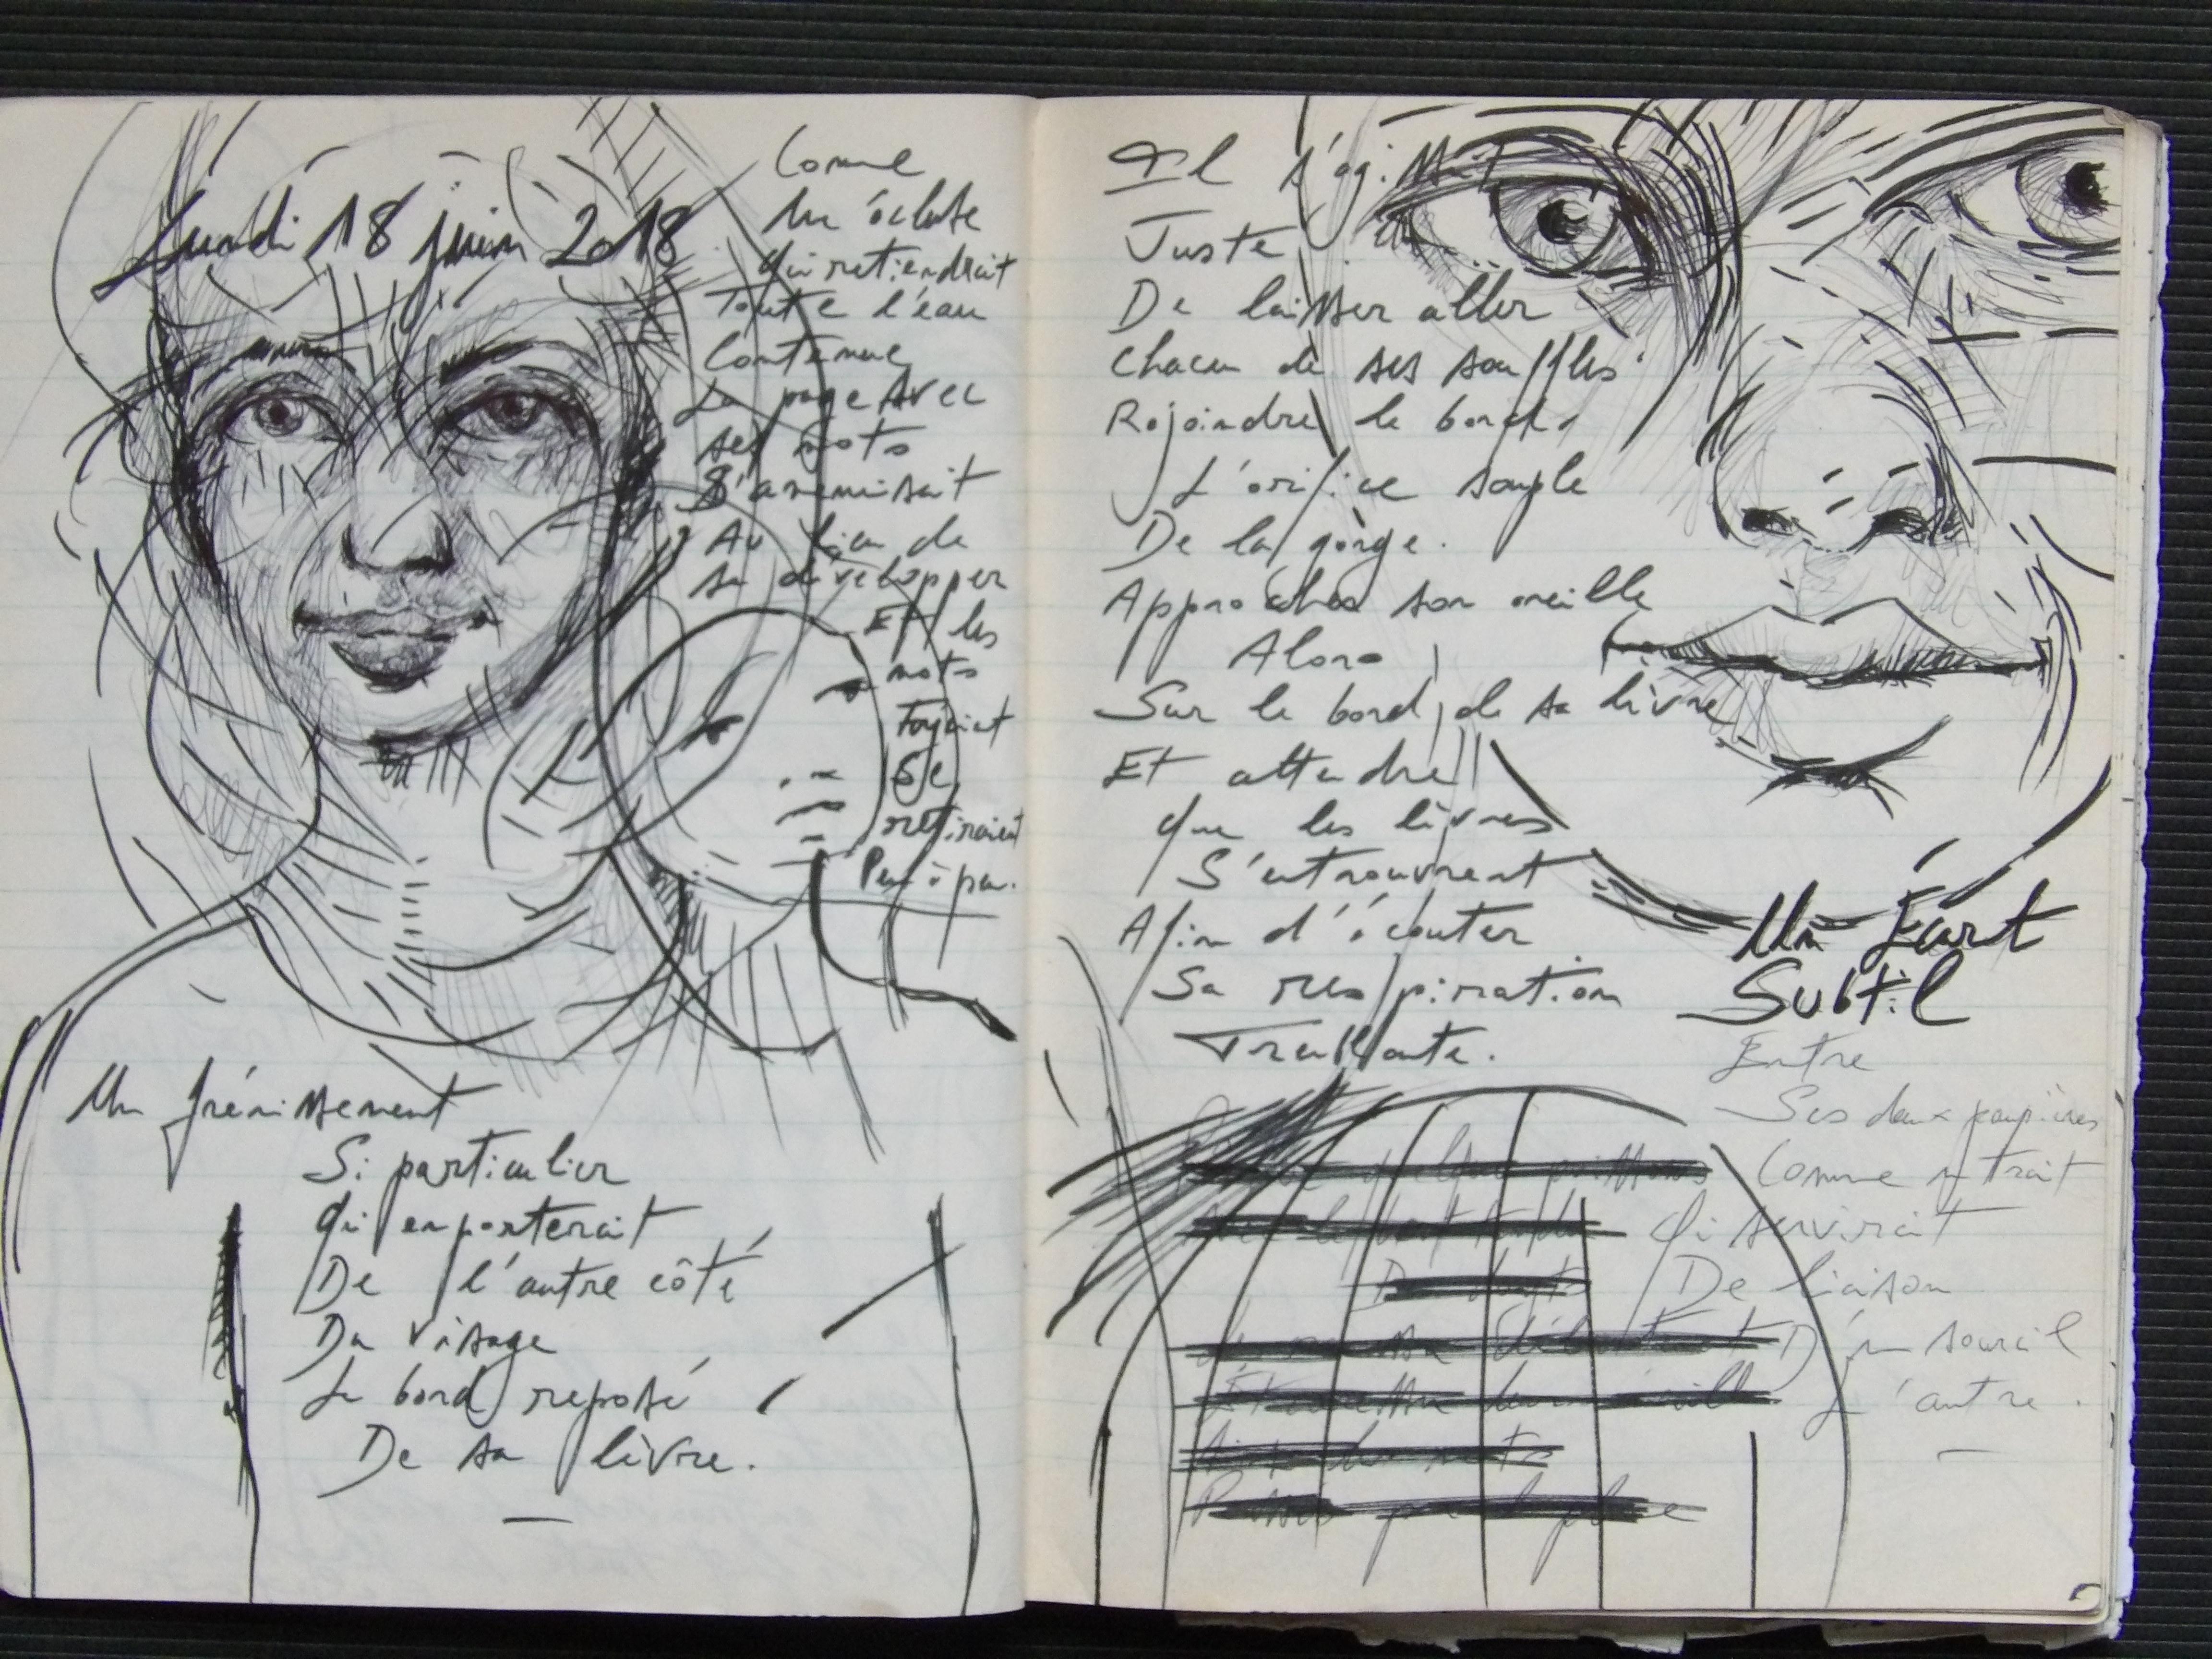 Lundi 18 juin 2018
Comme
Une écluse
qui retiendrait
Toute l'eau
Contenue
La page avec
ses mots
S'amenuisait
Au lieu de
se développer
Et les
mots
Se
retiraient
Peu à peu.
Un frémissement
Si particulier
Qui emporterait
De l'autre côté
Du visage
Le bord reposé
De sa lèvre.
Il s'agissait
Juste
De laisser aller
chacun de ses souffles
Rejoindre le bord.
L'orifice souple
De la gorge.
Approcher son oreille
Alors
Sur le bord de sa lèvre
Et attendre
que les lèvres
S'entrouvrent
Afin d'écouter
Sa respiration
Un Écart
Subtil
Entre
Ses deux paupières
Comme un trait
Qui servirait
De liaison
D'un sourcil
L'autre.